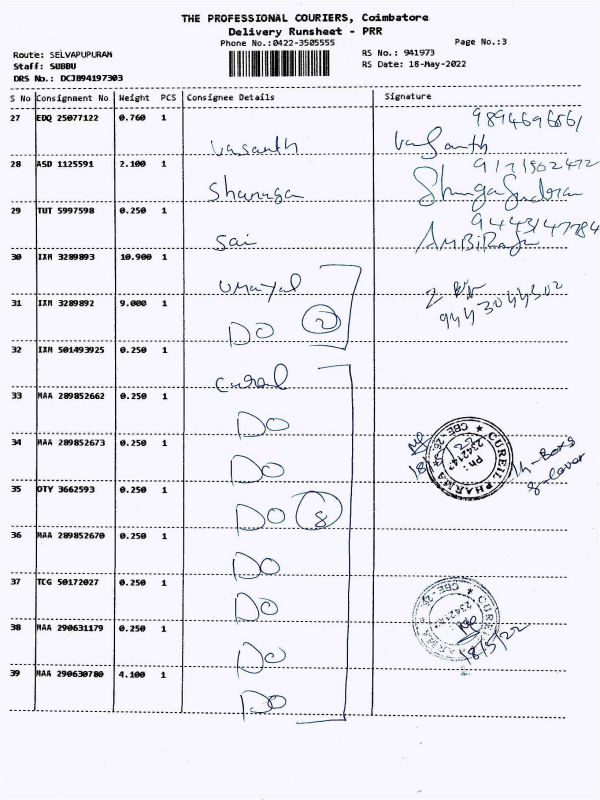 THE PROFESSIONAL COURIERS, Coimbatore
Delivery Runsheet - PRR
Phone No.:0422-3505555
Page No.:3
Route: SELVAPUPURAM
Staff: SUBBU
DRS No.: DCJB94197303
RS No.: 941973
RS Date: 18-May-2022
S No Consignment No Weight PCS Consignee Details Signature
27 EDQ 25077122 0.760 1 Vasanth Vasanth
28 ASD 1125591 2.100 1
29 TUT 5997598 0.250 1 Sai 9443147784
30 IXM 3289893 10.900 1 Umayal
31 IXM 3289892 9.000 1 DO 2 9443044302
32 IXM 501493925 0.250 1
33 MAA 289852662 0.250 1 DO
34 MAA 289852673 0.250 1 DO
35 OTY 3662593 0.250 1 DO 8
36 MAA 289852670 0.250 1 DO
37 TCG 50172027 0.250 1 DO
38 MAA 290631179 0.250 1 DO
39 MAA 290630780 4.100 1 DO
CUREIL PHARMA
18/5/22